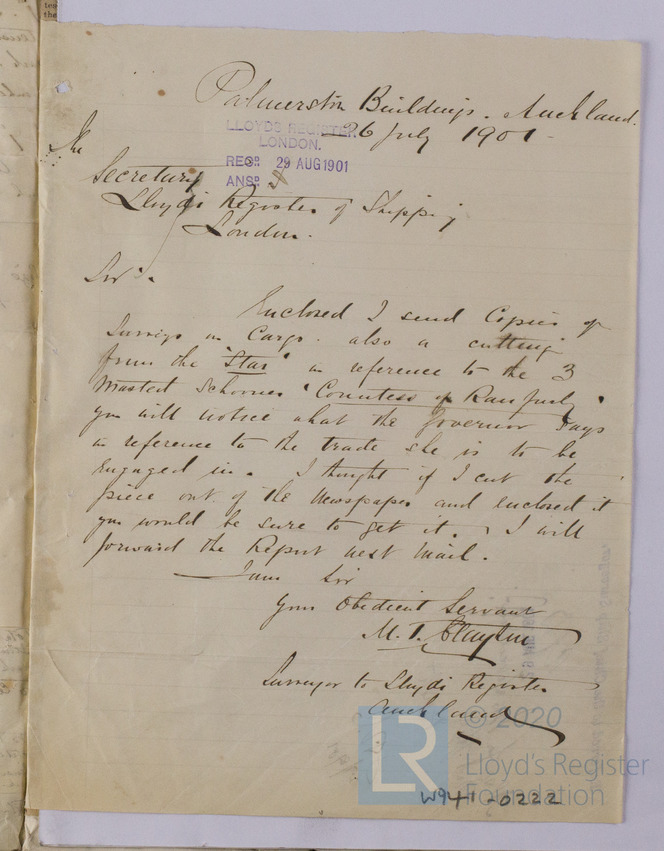 Palmerston Buildings. Auckland.
26 July 1901
LLOYD'S REGISTER
LONDON.
REC'D. 29 AUG 1901
ANS'D.
The
Secretary
Lloyds Register of Shipping
London.
Sir.
Enclosed I send Copies of
Surveys on Cargo. also a cutting
from the "Star" in reference to the 3
Masted Schooner "Countess of Ranfurly"
you will notice what the Governor Says
in reference to the trade she is to be
Engaged in. I thought if I cut the
piece out of the Newspaper and enclosed it
you would be sure to get it. I will
forward the Report next Mail.
I am Sir
Your Obedient Servant
M. T. Clayton
Surveyor to Lloyds Register
Auckland
LR
© 2020
Lloyd's Register
Foundation
W941-0222